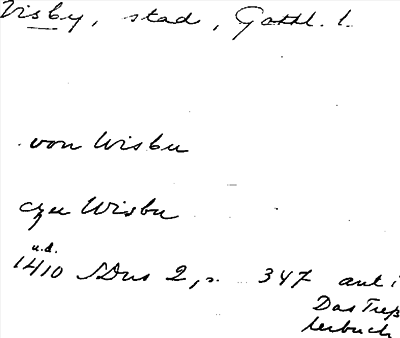 Visby, stad, Gottl. l.
von Wisbu
czu Wisbu
u.d.
1410 SDns 2, s. 347 ant i
Das Treß
lerbuch